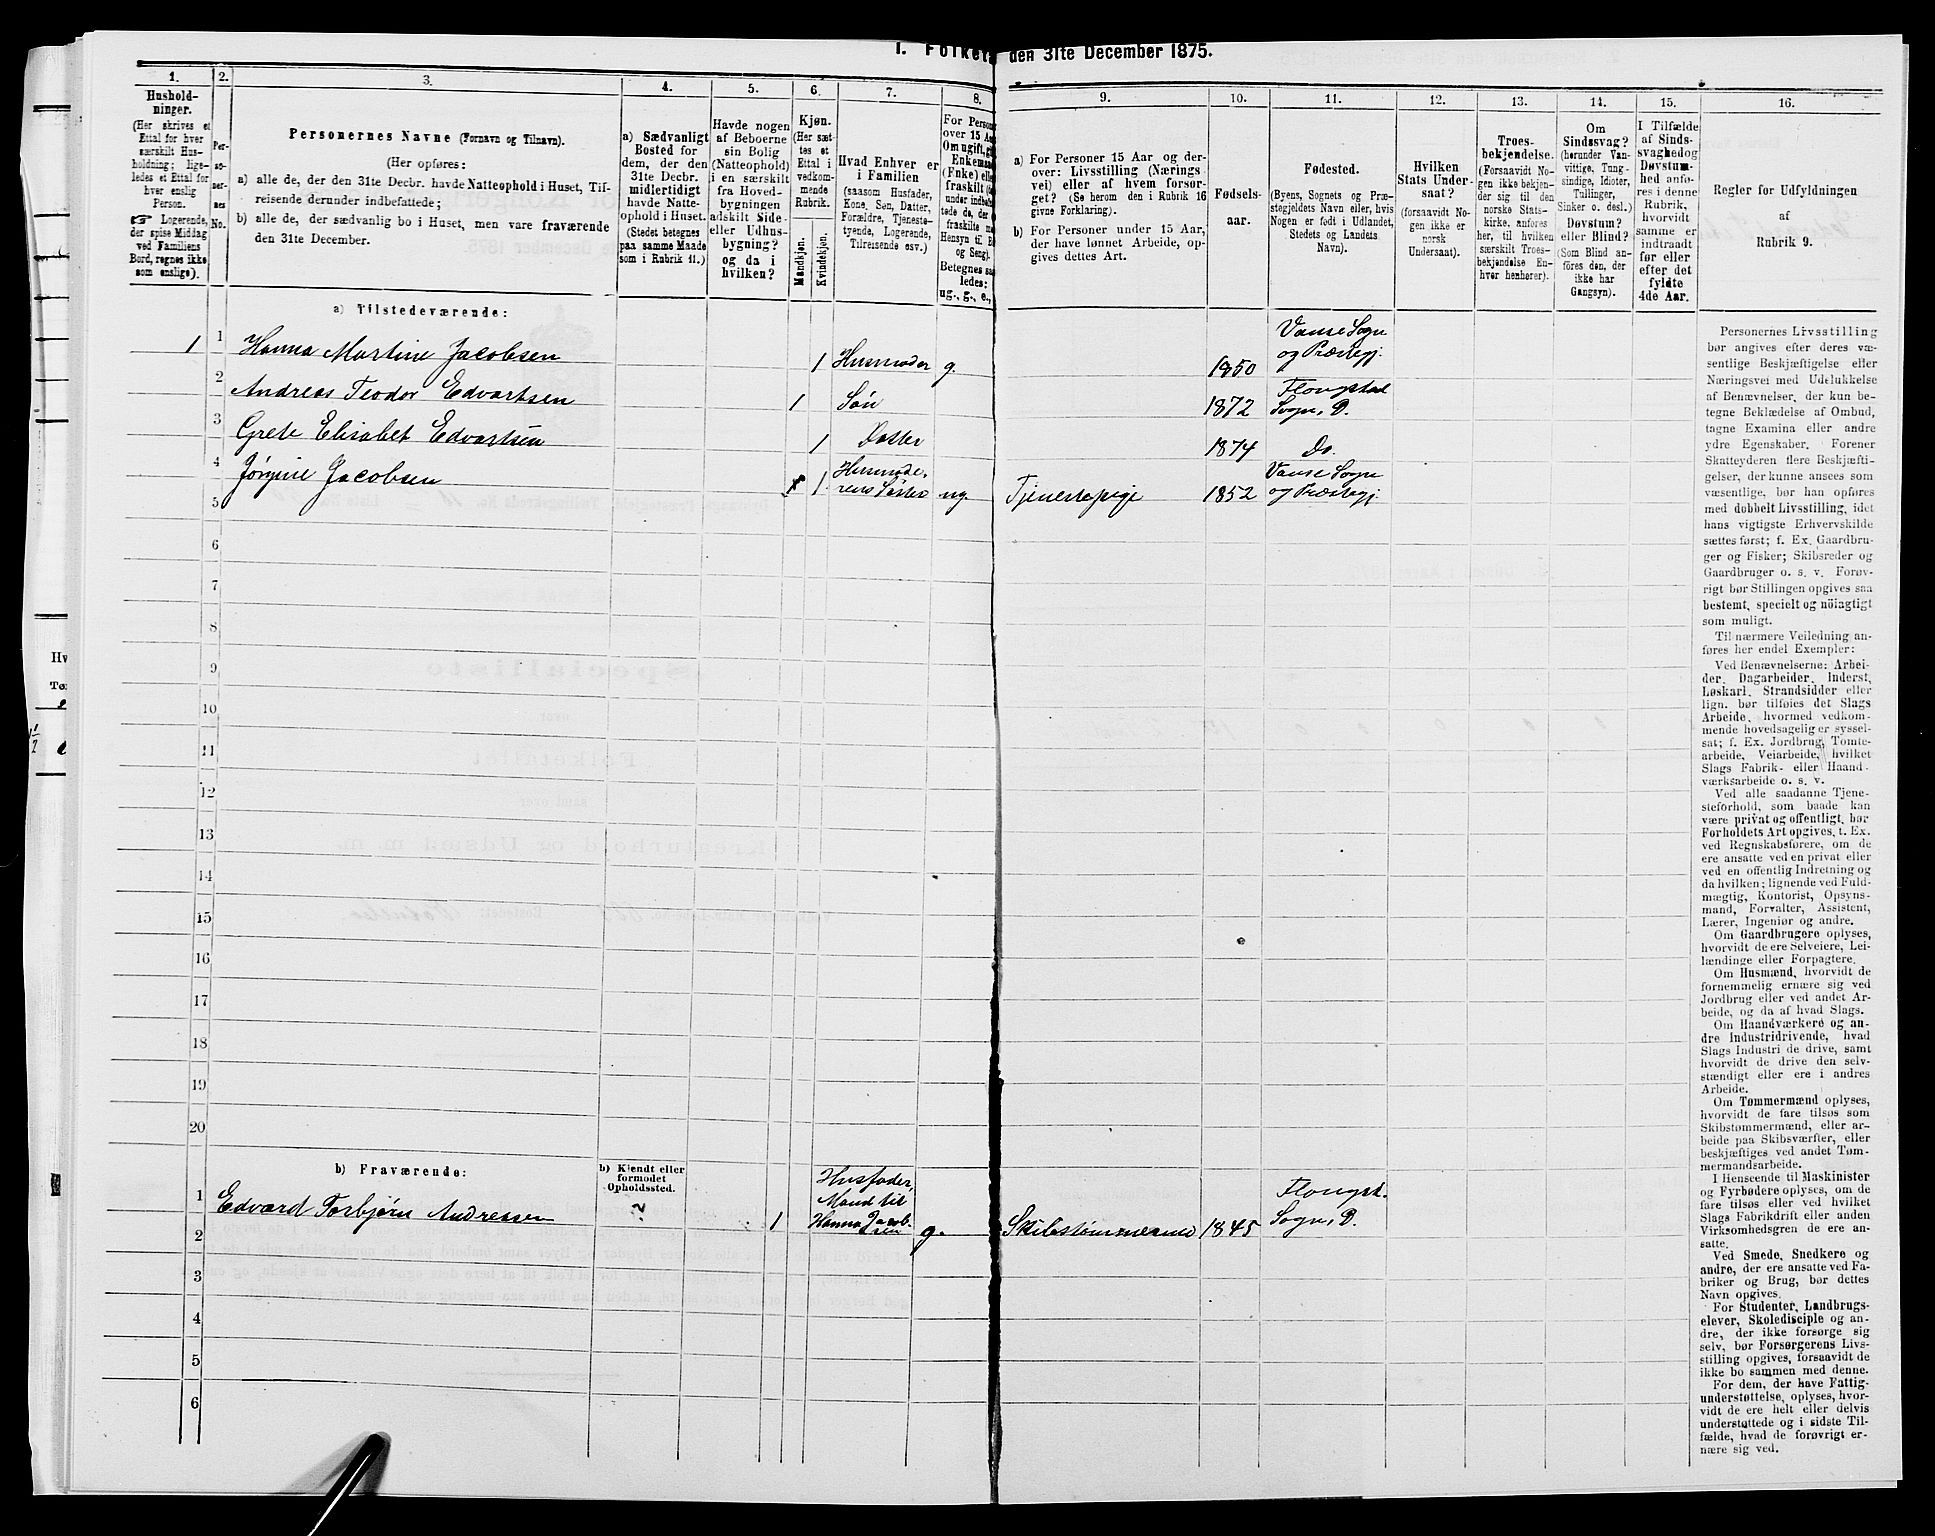 I. Folket
den 31te December 1875.
1.
2.
3.
4.
5.
6.
7.
8.
9.
10.
11.
12.
13.
14.
15.
16.
Hushold-
ninger.
(Her skrives et
Ettal for hver
særskilt Hus-
holdning; lige-
ledes et Ettal for
hver enslig
Person.
☞ Logerende,
der spise Middag
ved Familiens
Bord, regnes ikke
som enslige).
Per-
so-
ner-
nes
No.
Personernes Navne (Fornavn og Tilnavn).
(Her opføres:
a) alle de, der den 31te Decbr. havde Natteophold i Huset, Til-
reisende derunder indbefattede;
b) alle de, der sædvanlig bo i Huset, men vare fraværende
den 31te December.
a) Sædvanligt
Bosted for
dem, der den
31te Decbr.
midlertidigt
havde Natte-
ophold i Huset.
(Stedet betegnes
paa samme Maade
som i Rubrik 11.)
Havde nogen
af Beboerne
sin Bolig
(Natteophold)
i en særskilt
fra Hoved-
bygningen
adskilt Side-
eller Udhus-
bygning?
og da i
hvilken?
Kjøn.
(Her sæt-
tes et
Ettal i
vedkom-
mende
Rubrik.
Mandkjøn.
Kvindekjøn.
Hvad Enhver er
i Familien
(saasom Husfader,
Kone, Søn, Datter,
Forældre, Tjeneste-
tyende, Logerende,
Tilreisende osv.)
For Person
over 15 Aar
Om ugift, gi
Enkemand
(Enke) eller
fraskilt
under indbefat-
tede de, der
fraskilte m
Hensyn til B
og Seng).
Betegnes saa
ledes:
ug., g., e.,
a) For Personer 15 Aar og der-
over: Livsstilling (Nærings
vei) eller af hvem forsør-
get? (Se herom den i Rubrik 16
givne Forklaring).
b) For Personer under 15 Aar,
der have lønnet Arbeide, op-
gives dettes Art.
Fødsels-
aar.
Fødested.
(Byens, Sognets og Præ-
stegjeldets Navn eller, hvis
Nogen er født i Udlandet,
Stedets og Landets
Navn).
Hvilken
Stats Under-
saat?
(forsaavidt No-
gen ikke er
norsk
Undersaat).
Troes-
bekjendelse.
(Forsaavidt No-
gen ikke bekjen-
der sig til den
norske Stats-
kirke, anføres
her, til hvilken
særskilt Troes-
bekjendelse En-
hver henhører).
Om
Sindssvag?
(herunder Van-
vittige, Tung-
sindige, Idioter,
Tullinger,
Sinker o. desl.)
Døvstum?
eller Blind?
(Som Blind an-
føres den, der
ikke har
Gangsyn).
I Tilfælde
af Sinds-
svaghed og
Døvstum-
hed anfø-
res i denne
Rubrik,
hvorvidt
samme er
indtraadt
før eller
efter det
fyldte
4de Aar.
Regler for Udfyldningen
af
Rubrik 9.
a) Tilstedeværende:
1 1 Hanna Martine Jacobsen 1 Husmoder g. 1850 Vanse Sogn og Præstegj.
2 Andreas Teodor Edvartsen 1 Søn 1872 Sogn, D.
3 Grete Elisabet Edvartsen 1 Datter 1874 Do.
4 Jørgine Jacobsen 1 Husmode-
rens Søster ug. Tjenestepige 1852 Vanse Sogn og Præstegj.
5
6
7
8
9
10
11
12
13
14
15
16
17
18
19
20
b) Fraværende:
b) Kjendt eller
formodet
Opholdssted.
1 Edvard Torbjørn Andressen ? 1 Husfader,
Mand til
Hanna Jacob-
sen g. Skibstømmermand 1845 Sogn, D.
2
3
4
5
6
Personernes Livsstilling
bør angives efter deres væ-
sentlige Beskjæftigelse eller
Næringsvei med Udelukkelse
af Benævnelser, der kun be-
tegne Beklædelse af Ombud,
tagne Examina eller andre
ydre Egenskaber. Forener
Skatteyderen flere Beskjæfti-
gelser, der kunne ansees som
væsentlige, bør han opføres
med dobbelt Livsstilling, idet
hans vigtigste Erhvervskilde
sættes først; f. Ex. Gaardbru-
ger og Fisker; Skibsreder og
Gaardbruger o. s. v. Forøv-
rigt bør Stillingen opgives saa
bestemt, specielt og nöiagtigt
som muligt.
Til nærmere Veiledning an-
føres her endel Exempler:
Ved Benævnelserne: Arbei-
der, Dagarbeider, Inderst,
Løskarl, Strandsidder eller
lign. bør tilføies det Slags
Arbeide, hvormed vedkom-
mende hovedsagelig er syssel-
sat; f. Ex. Jordbrug, Tomte-
arbeide, Veiarbeide, hvilket
Slags Fabrik- eller Haand-
værksarbeide o. s. v.
Ved alle saadanne Tjene-
steforhold, som baade kan
være privat og offentligt, bør
Forholdets Art opgives, t. Ex.
ved Regnskabsførere, om de
ere ansatte ved en privat eller
ved en offentlig Indretning og
da hvilken; lignende ved Fuld-
mægtig, Kontorist, Opsyns-
mand, Forvalter, Assistent,
Lærer, Ingeniør og andre.
Om Gaardbrugere oplyses,
hvorvidt de ere Selveiere, Lei-
lændinge eller Forpagtere.
Om Husmænd, hvorvidt de
fornemmelig ernære sig ved
Jordbrug eller ved andet Ar-
beide, og da af hvad Slags.
Om Haandværkere og an-
dre Industridrivende, hvad
Slags Industri de drive, samt
hvorvidt de drive den selv-
stændigt eller ere i andres
Arbeide.
Om Tømmermænd oplyses,
hvorvidt de fare tilsøs som
Skibstømmermænd, eller ar-
beide paa Skibsværfter, eller
beskjæftiges ved andet Tøm-
mermandsarbeide.
I Henseende til Maskinister
og Fyrbødere oplyses, om de
fare tilsøs eller ved hvilket
Slags Fabrikdrift eller anden
Virksomhedsgren de ere an-
satte.
Ved Smede, Snedkere og
andre, der ere ansatte ved Fa-
briker og Brug, bør dettes
Navn opgives.
For Studenter, Landbrugs-
elever, Skoledisciple og an-
dre, der ikke forsørge sig
selv, bør Forsørgerens Livs-
stilling opgives, forsaavidt de
ikke bo sammen med denne.
For dem, der have Fattig-
understøttelse, oplyses, hvor-
vidt de ere helt eller delvis
understøttede og i sidste Til-
fælde, hvad de forøvrigt er-
nære sig ved.